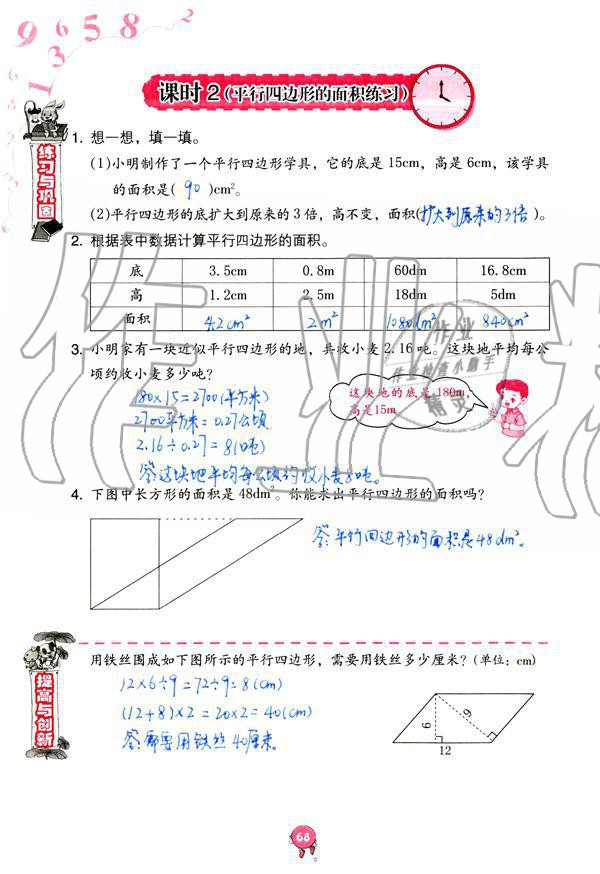 9 6 5 8 2
1 3
课时 2 (平行四边形的面积练习)
练习与巩固
1. 想一想，填一填。
(1)小明制作了一个平行四边形学具，它的底是 15cm，高是 6cm，该学具
的面积是( 90 )cm²。
(2)平行四边形的底扩大到原来的 3 倍，高不变，面积(扩大到原来的3倍)。
2. 根据表中数据计算平行四边形的面积。
底 3.5cm 0.8m 60dm 16.8cm
高 1.2cm 2.5m 18dm 5dm
面积 4.2cm² 2m² 1080dm² 840cm²
3. 小明家有一块近似平行四边形的地，共收小麦 2.16 吨。这块地平均每公
顷约收小麦多少吨？
这块地的底是 180m，
高是15m
180×15=2700(平方米)
2700平方米=0.27公顷
2.16÷0.27=8(吨)
答:这块地平均每公顷约收小麦8吨。
4. 下图中长方形的面积是 48dm²。你能求出平行四边形的面积吗？
答:平行四边形的面积是48dm²。
提高与创新
用铁丝围成如下图所示的平行四边形，需要用铁丝多少厘米？(单位：cm)
12×6÷9=72÷9=8(cm)
(12+8)×2=20×2=40(cm)
答:需要用铁丝40厘米。
6 9
12
68
作业
作业检查小助手
精灵